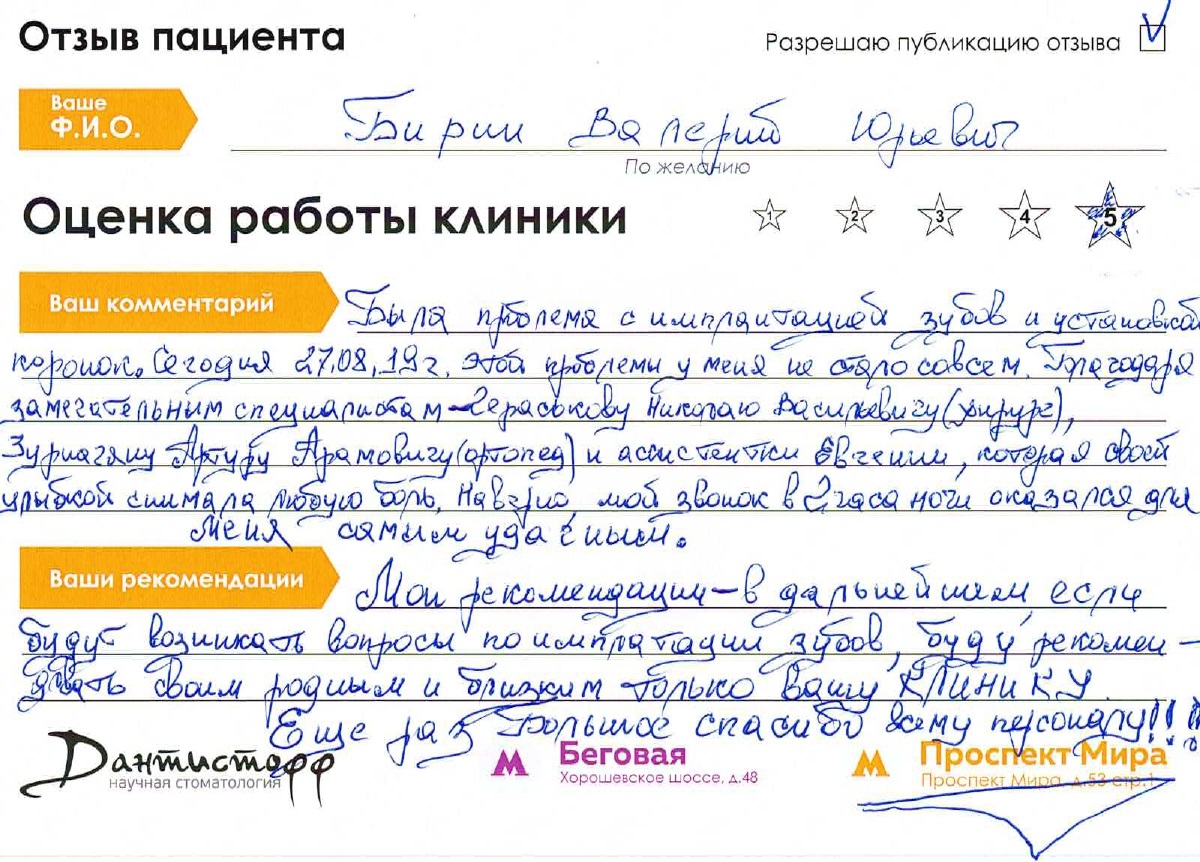 Отзыв пациента
Разрешаю публикацию отзыва
Ваше
Ф.И.О.
Бирин Валерий Юрьевич
По желанию
Оценка работы клиники
1 2 3 4 5
Ваш комментарий
Была проблема с имплантацией зубов и установкой
коронок. Сегодня 27.08.19г. этой проблемы у меня не стало совсем. Благодаря
замечательным специалистам – Гераськову Николаю Васильевичу (хирург),
Зурнагяну Артуру Арамовичу (ортопед) и ассистентки Евгении, которая своей
улыбкой снимала любую боль. Наверно, мой звонок в 2 часа ночи оказался для
меня самым удачным.
Ваши рекомендации
Мои рекомендации – в дальнейшем если
будут возникать вопросы по имплатации зубов, буду рекомен-
довать своим родным и близким только вашу КЛИНИКУ.
Еще раз Большое спасибо всему персоналу!!!
Дантистофф
научная стоматология
М Беговая
Хорошевское шоссе, д.48
М Проспект Мира
Проспект Мира, д.53 стр.1